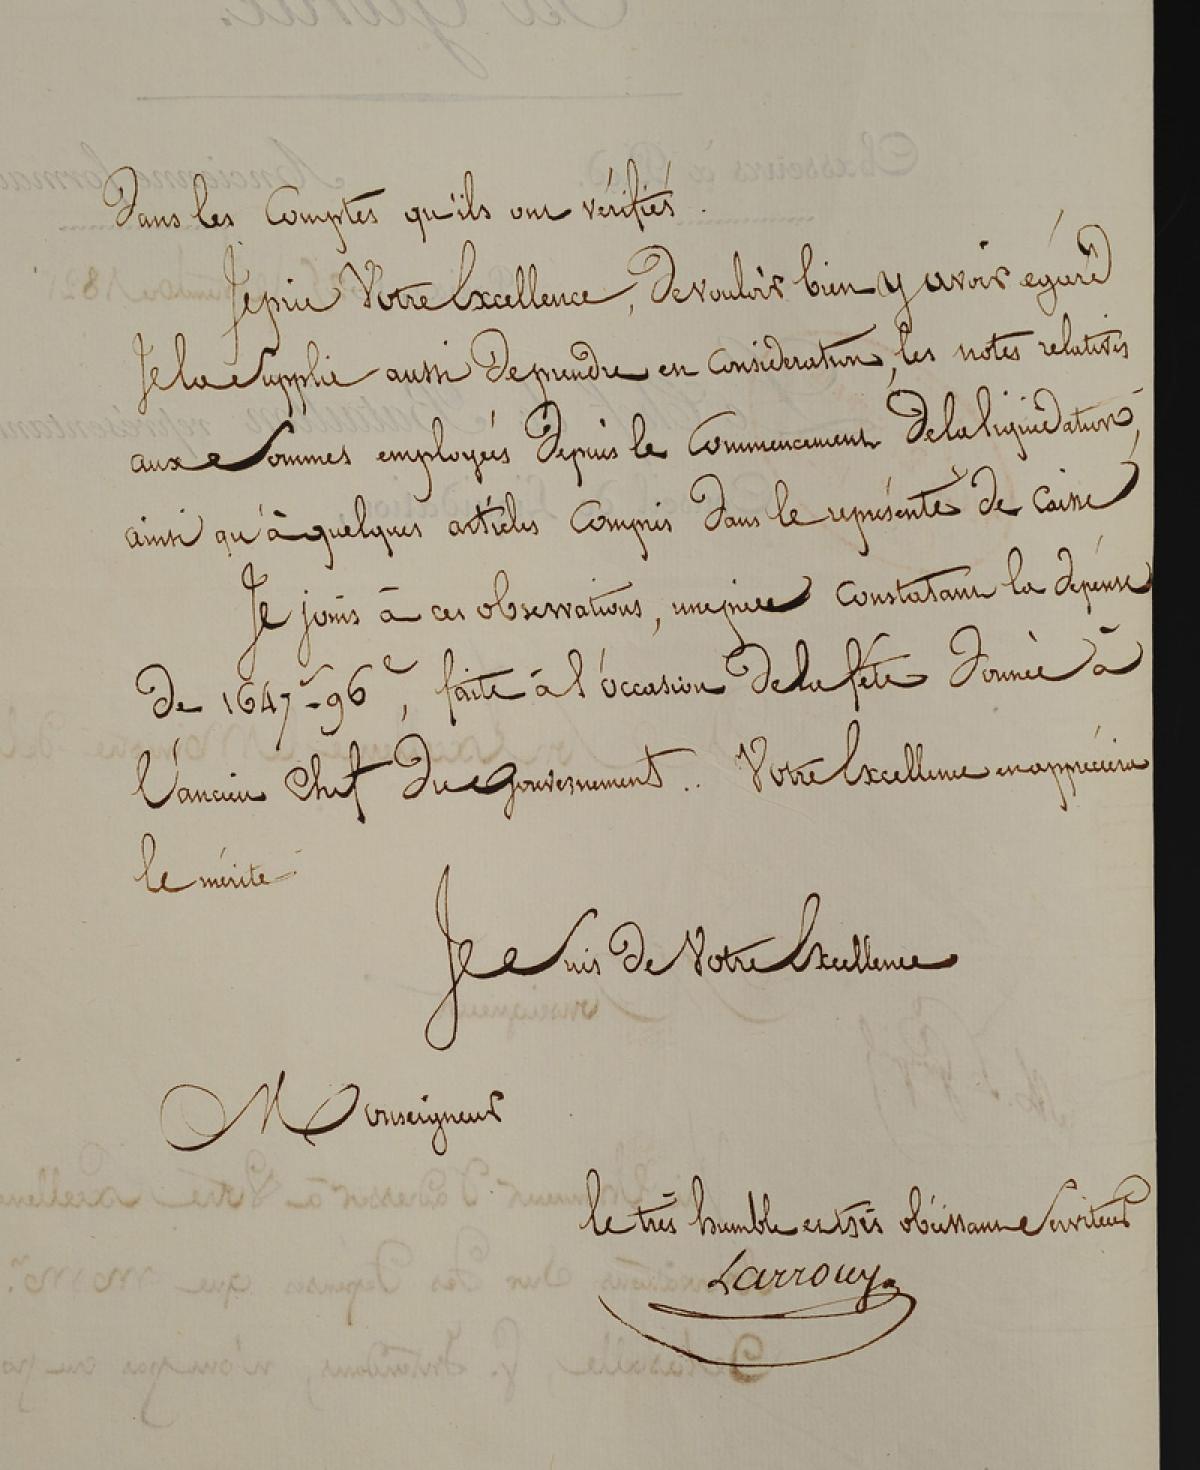 Dans les Comptes qu'ils ont vérifiés.
Je prie Votre Excellence, de vouloir bien y avoir égard
Je la Supplie aussi de prendre en considération, les notes relatives
aux Sommes employées depuis le Commencement de la liquidation,
ainsi qu'à quelques articles Compris dans le représenté de Caisse
Je joins à ces observations, une pièce constatant la dépense
de 1647f-96c, faite à l'occasion de la fête donnée à
l'ancien Chef du Gouvernement.. Votre Excellence en appréciera
le mérite
Je Suis de Votre Excellence
Monseigneur
le très humble et très obéissant Serviteur
Larrouy